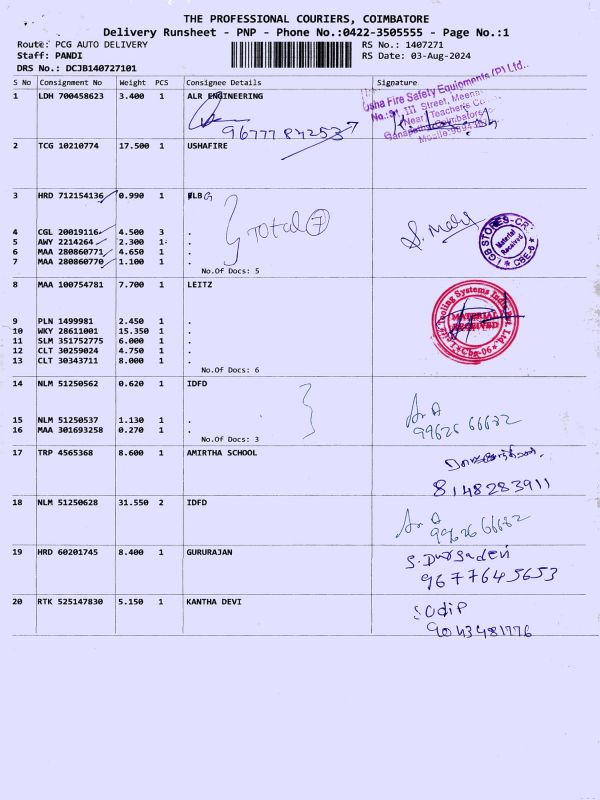 THE PROFESSIONAL COURIERS, COIMBATORE
Delivery Runsheet - PNP - Phone No.:0422-3505555 - Page No.:1
Route: PCG AUTO DELIVERY RS No.: 1407271
Staff: PANDI RS Date: 03-Aug-2024
DRS No.: DCJB140727101
S No Consignment No Weight PCS Consignee Details Signature
1 LDH 700458623 3.400 1 ALR ENGINEERING
Usha Fire Safety Equipments (P) Ltd.,
III Street,
Near Teacher's
9677784253
2 TCG 10210774 17.500 1 USHAFIRE
3 HRD 712154136 0.990 1 LBG
4 CGL 20019116 4.500 3 .
Total 7
S. Mary
LGB STORES-CR.
Material Received
CBE-6
5 AWY 2214264 2.300 1 .
6 MAA 280860771 4.650 1 .
7 MAA 280860770 1.100 1 .
No.Of Docs: 5
8 MAA 100754781 7.700 1 LEITZ
Leitz Tooling Systems India Pvt. Ltd.
MATERIAL RECEIVED
Cbe-06
9 PLN 1499981 2.450 1 .
10 WKY 28611001 15.350 1 .
11 SLM 351752775 6.000 1 .
12 CLT 30259024 4.750 1 .
13 CLT 30343711 8.000 1 .
No.Of Docs: 6
14 NLM 51250562 0.620 1 IDFD
15 NLM 51250537 1.130 1 .
99626 66682
16 MAA 301693258 0.270 1 .
No.Of Docs: 3
17 TRP 4565368 8.600 1 AMIRTHA SCHOOL
8148283911
18 NLM 51250628 31.550 2 IDFD
99626 66682
19 HRD 60201745 8.400 1 GURURAJAN
S. Durgadevi
9677645653
20 RTK 525147830 5.150 1 KANTHA DEVI
Sodip
9043481776